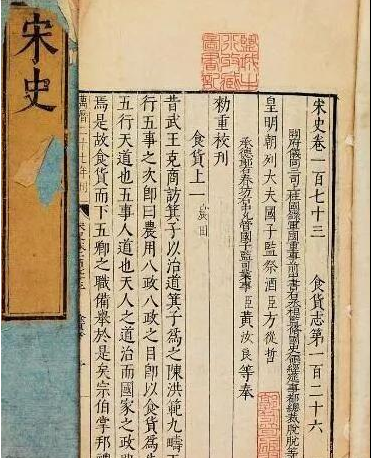 宋史
宋史卷一百七十三 食貨志第一百二十六
開府儀同三司上柱國錄軍國重事前中書右丞相監修國史領經筵事都總裁脫脫等
皇明朝列大夫國子監祭酒臣方從哲
承德郎右春坊右中允管國子監司業事臣黃汝良等奉
勑重校刊
食貨上一 農田
昔武王克商訪箕子以治道箕子爲之陳洪範九疇
行五事之次即曰農用八政八政之目即以食貨爲先
五行天道也五事人道也天人之道治而國家之政興
焉是故食貨而下五卿之職備舉於是矣宗伯掌邦禮
萬曆二十七年刊